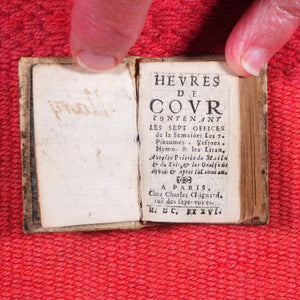 HEVRES
DE
COVR
CONTENANT
LES SEPT OFFICES
de la Semaine: Les 7.
Pseaumes, Vespres,
Hymn. & les Litan.
Auec les Prieres du Matin
& du Soir, & les
& apres
A PARIS,
Chez Charles
ruë des sept-voyes.